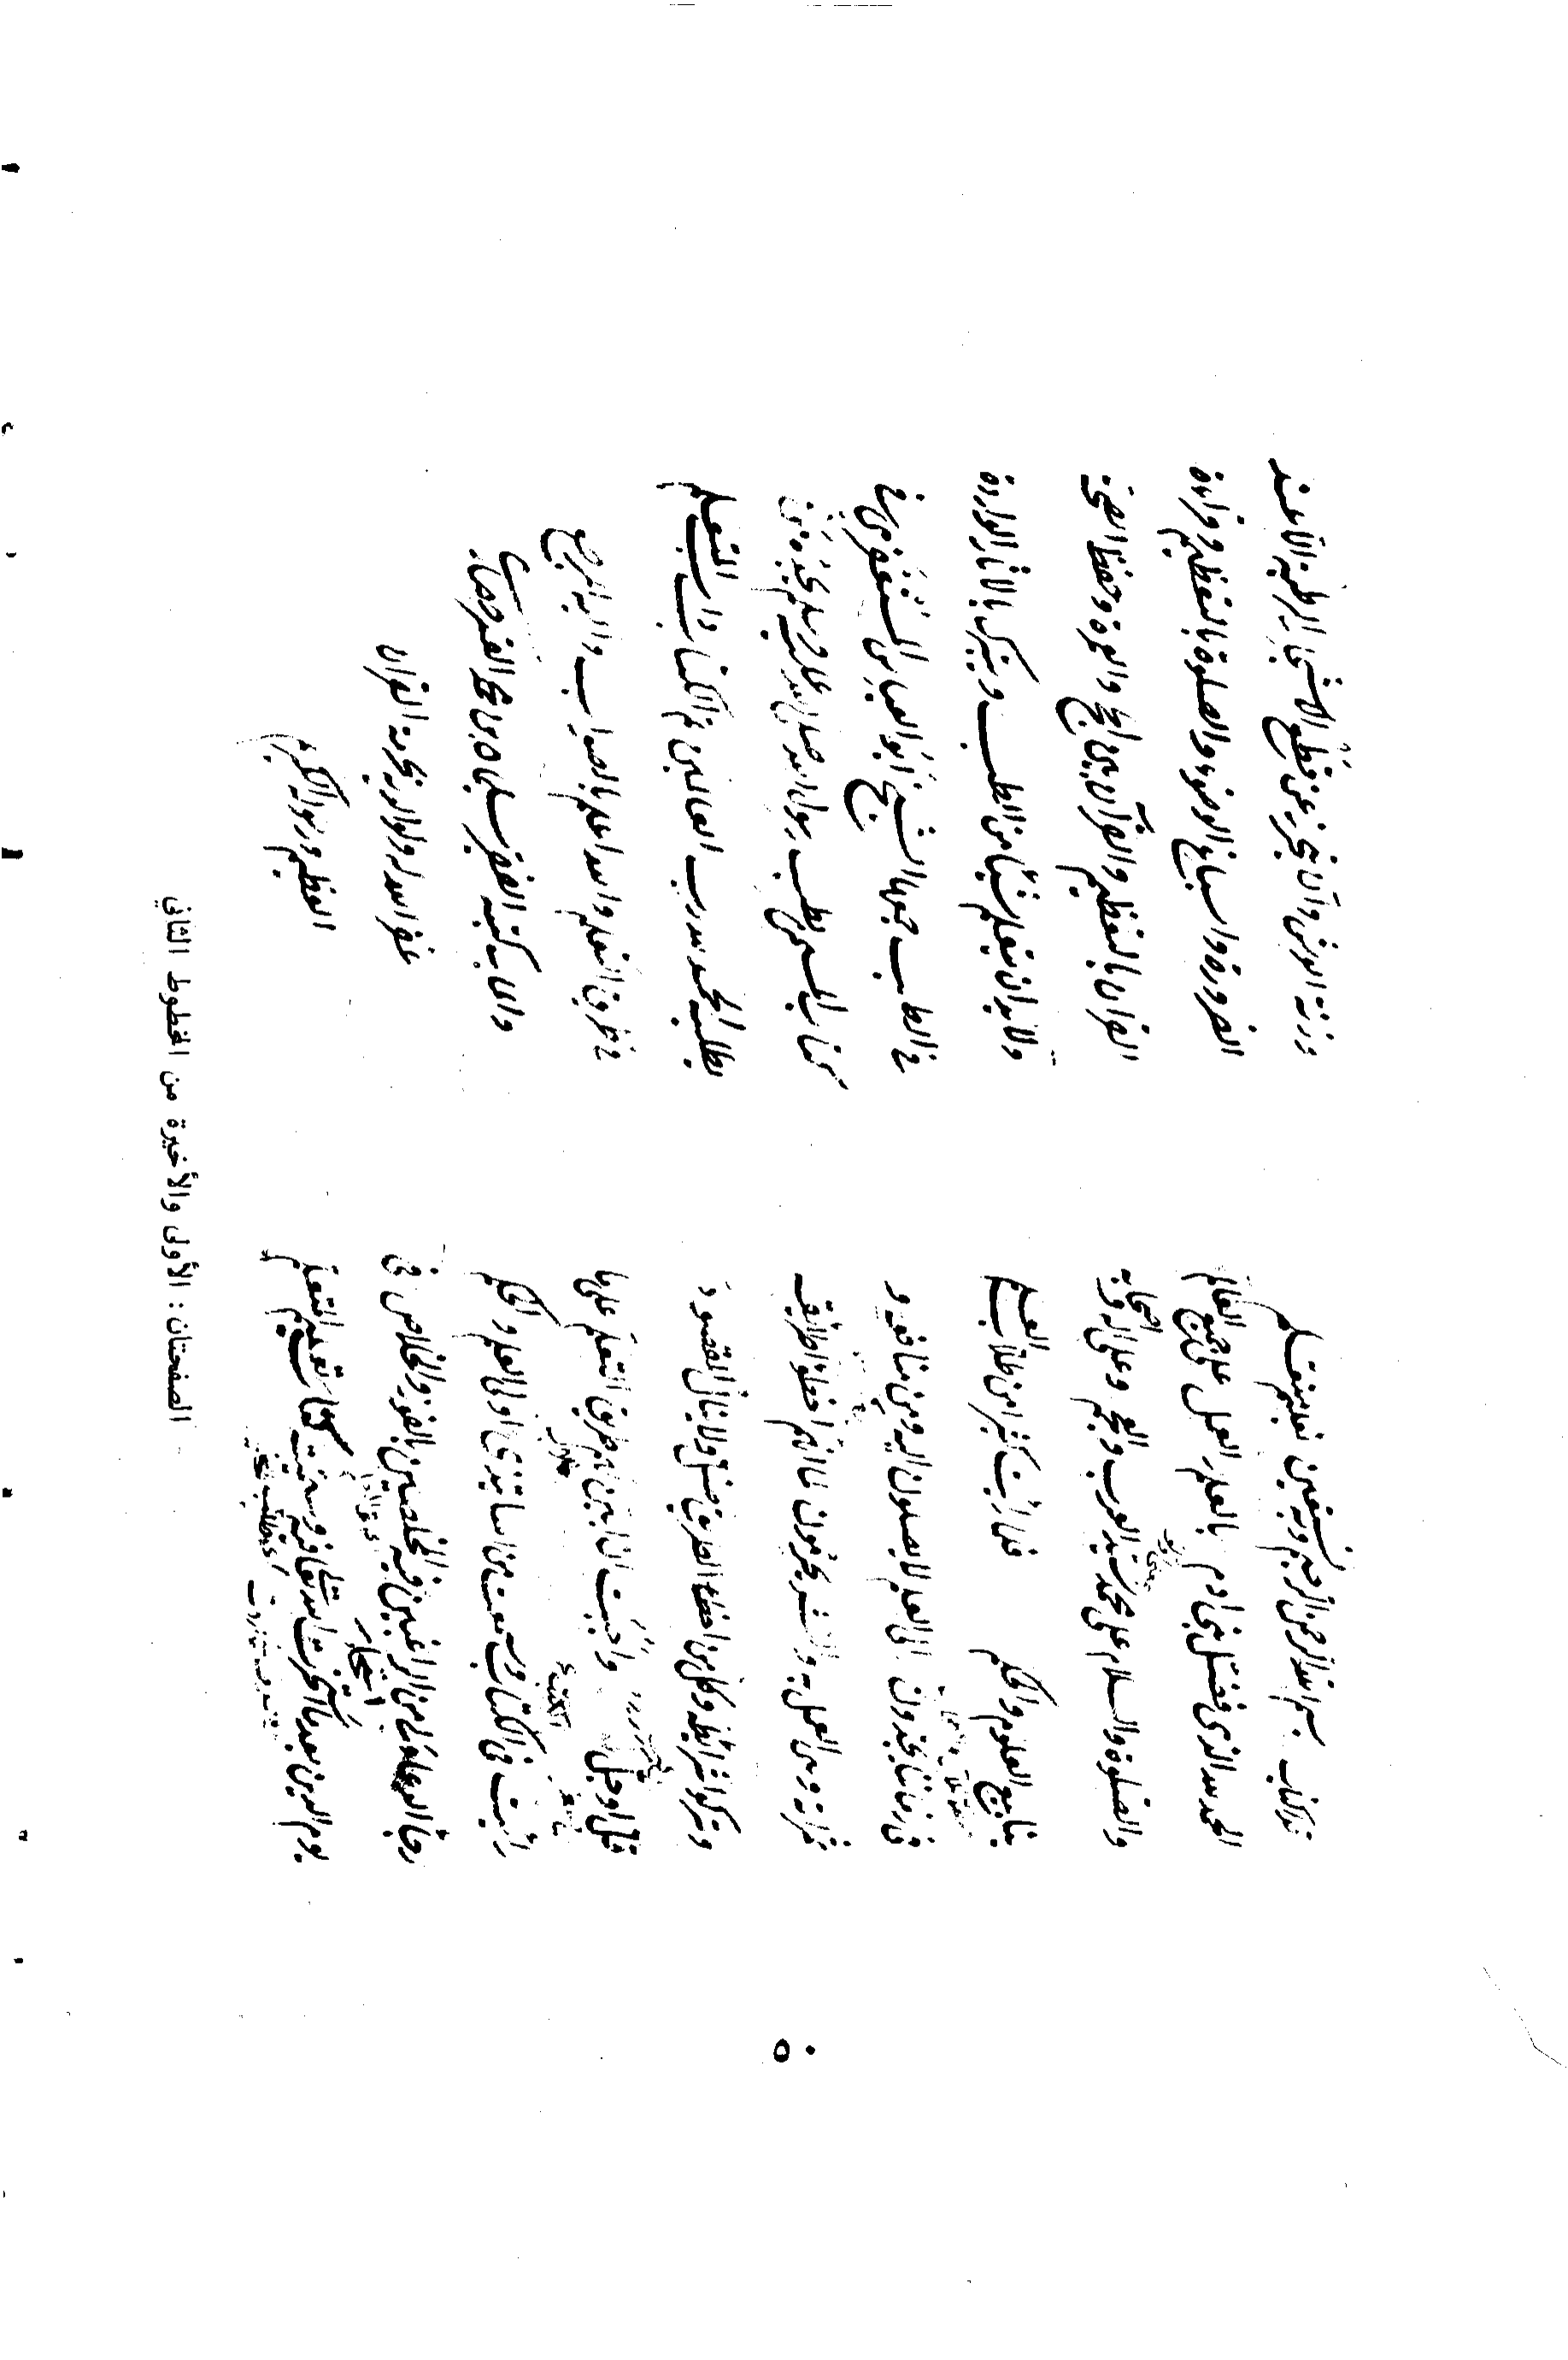 كتاب بسم الله الرحمن الرحيم وبه نستعين تعليم متعلم
الحمد لله الذي فضل بني ادم بالعلم والعمل على جميع العالم
والصلوة والسلام على محمد سيد العرب والعجم وعلى اله واصحابه
ينابيع العلوم والحكم فلما رأيت كثيرا من طلاب العلم
في زماننا يجدون الى العلم لا يصلون اليه ومن منافعه و
ثمراته وهى العمل به والنشر يحرمون لما انهم اخطؤا طرائقه
وتركوا شرائطه وكل من اخطاء الطريق ضل ولا ينال المقصود
قل او جل واحببت ان ابين لهم طريق التعلم على ما
رأيت في الكتاب وسمعت من اساتيذى اولى العلم والحكم
رجاء الدعاء لى من الراغبين فيه المخلصين بالفوز والخلاص في
يوم الدين بعد ما استخرت الله تعالى فيه وسميته كتاب تعليم المتعلم
وزنة العرش وان يحترز عن قطع الاشجار الرطبة الا عند
الضرورة واسباغ الوضوء والصلوة بالتعظيم وقراءة
القران بالتعظيم والقرآن بين الحج والعمرة وحفظ الصحة
ولا بد ان يتعلم شيئا من الطب ويتبرك بالاثار الواردة
في الطب جمعها الشيخ ابو العباس المستغفرى في
كتاب المسمى بطب رسول الله صلى الله عليه وسلم يجده من
يطلبه الحمد لله رب العالمين تم الكتاب التعليم
في طريق التعلم والله اعلم بالصواب واليه المرجع
والماب كتبه الفقير
غفر الله له ولوالديه بحرمة القران
العظيم ورسوله الكريم
الصفحتان : الأولى والأخيرة من المخطوط الثاني
٥٠